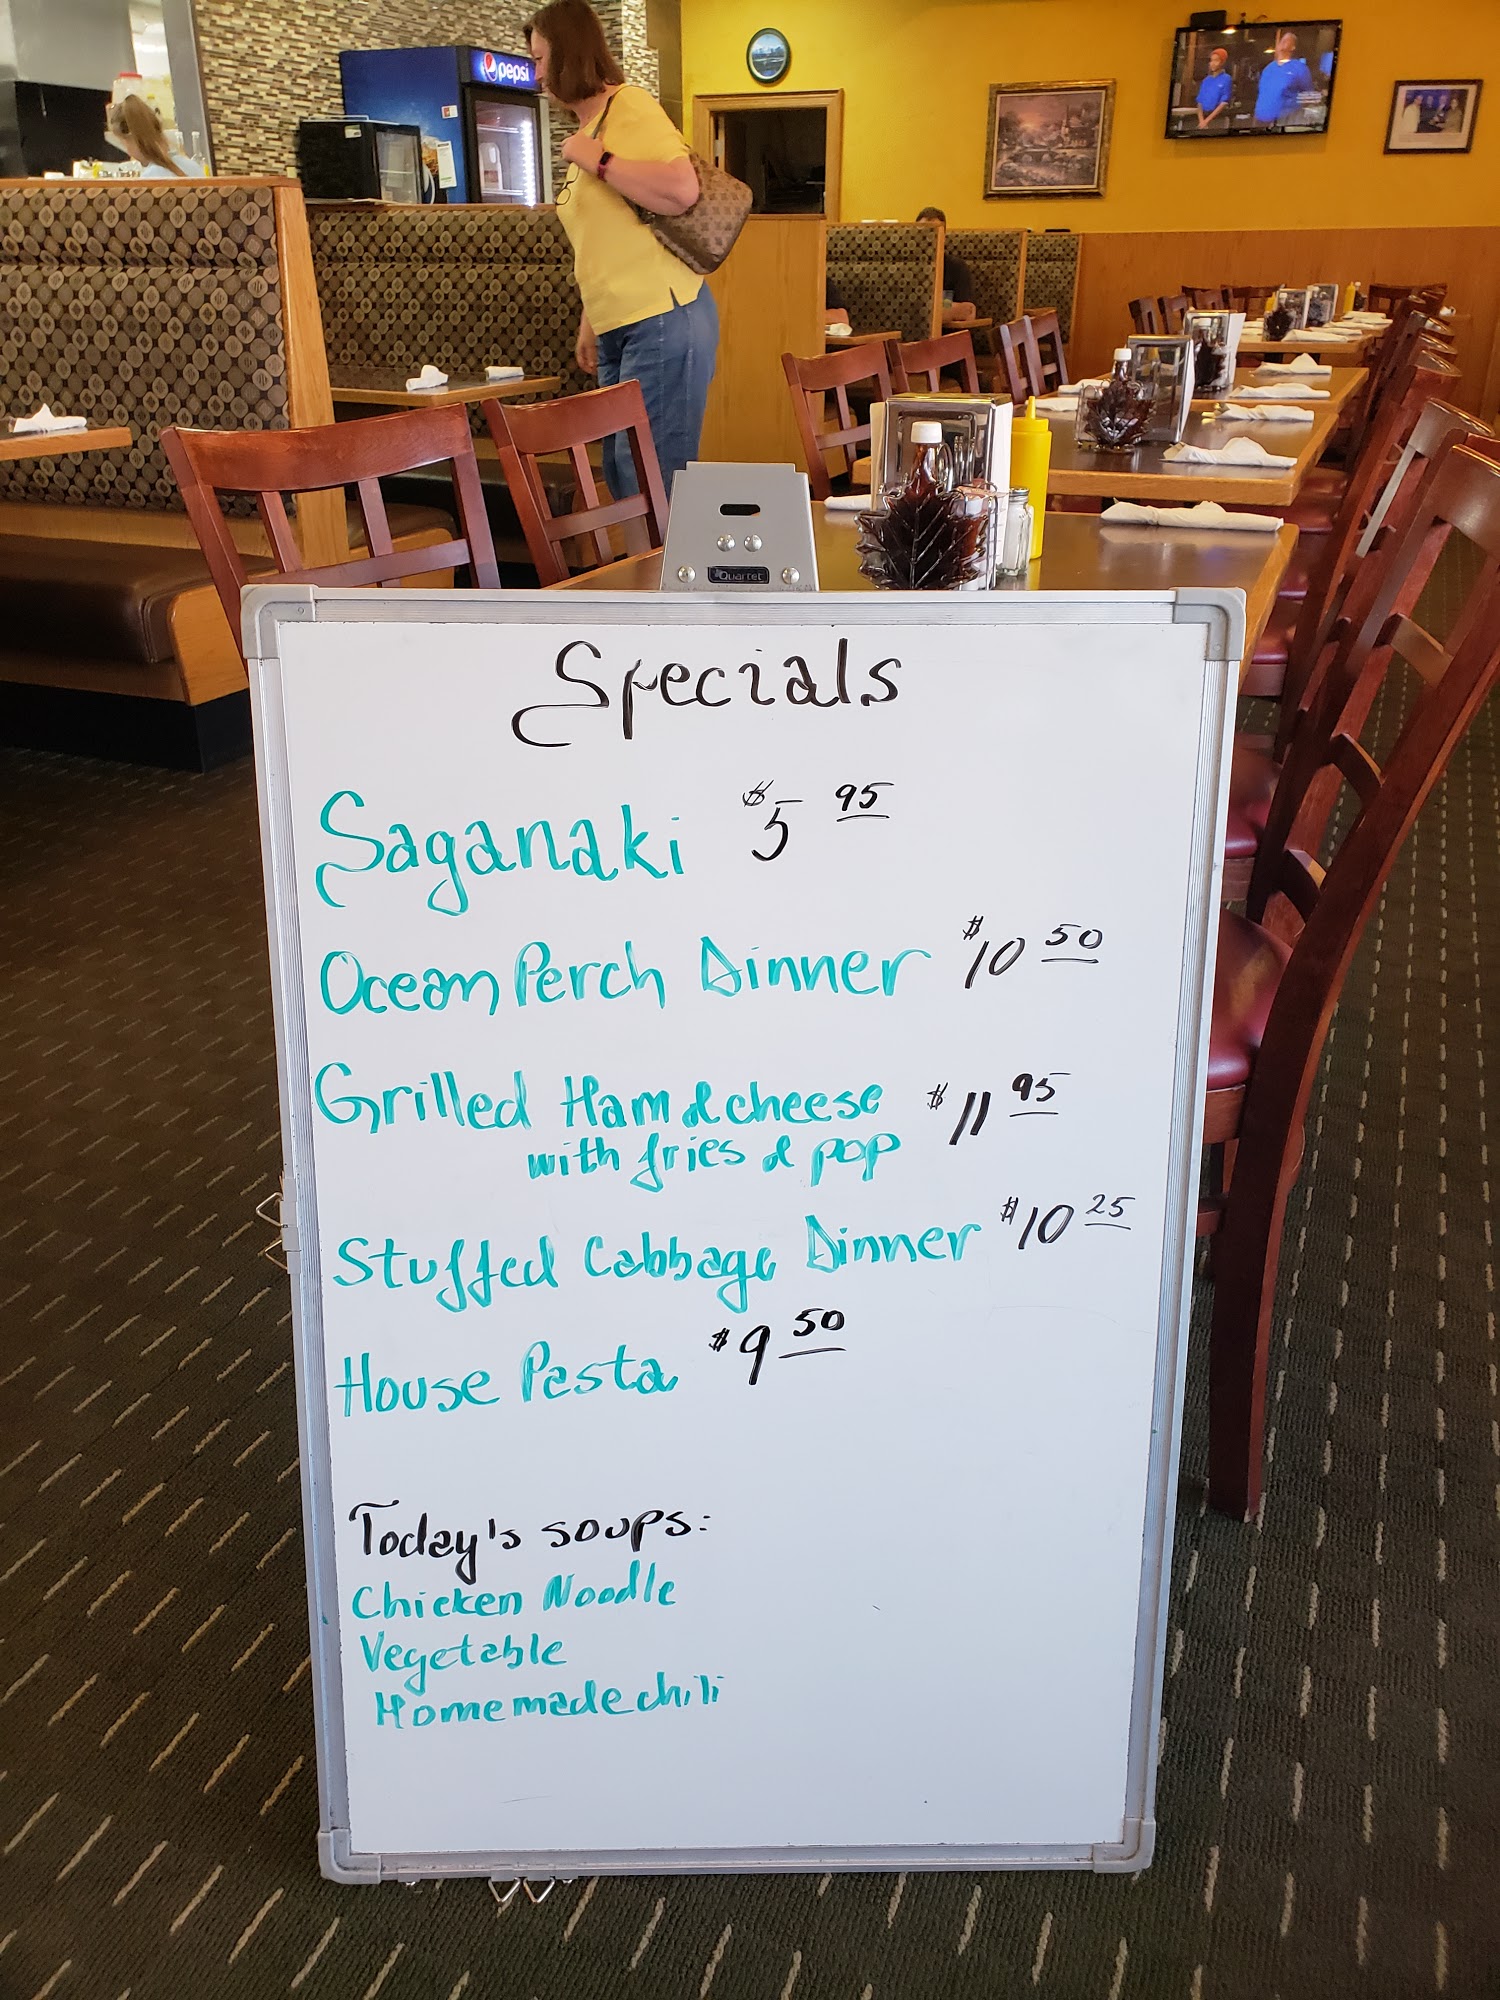 pepsi
Quartet
Specials
Saganaki $5 95
Ocean Perch Dinner $10 50
Grilled Ham & cheese $11 95
with fries & pop
Stuffed Cabbage Dinner $10 25
House Pasta $9 50
Today's soups:
Chicken Noodle
Vegetable
Homemade chili